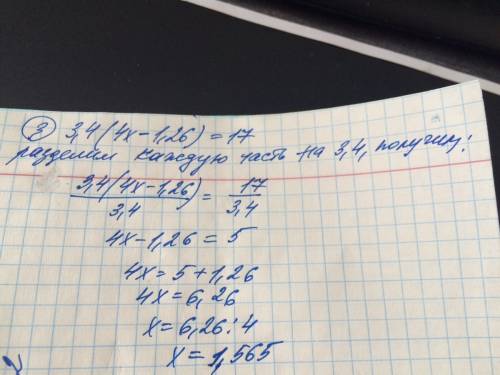 ③ 3,4(4x-1,26)=17
разделим каждую часть на 3,4, получим:
3,4(4x-1,26)/3,4 = 17/3,4
4x-1,26=5
4x=5+1,26
4x=6,26
x=6,26:4
x=1,565